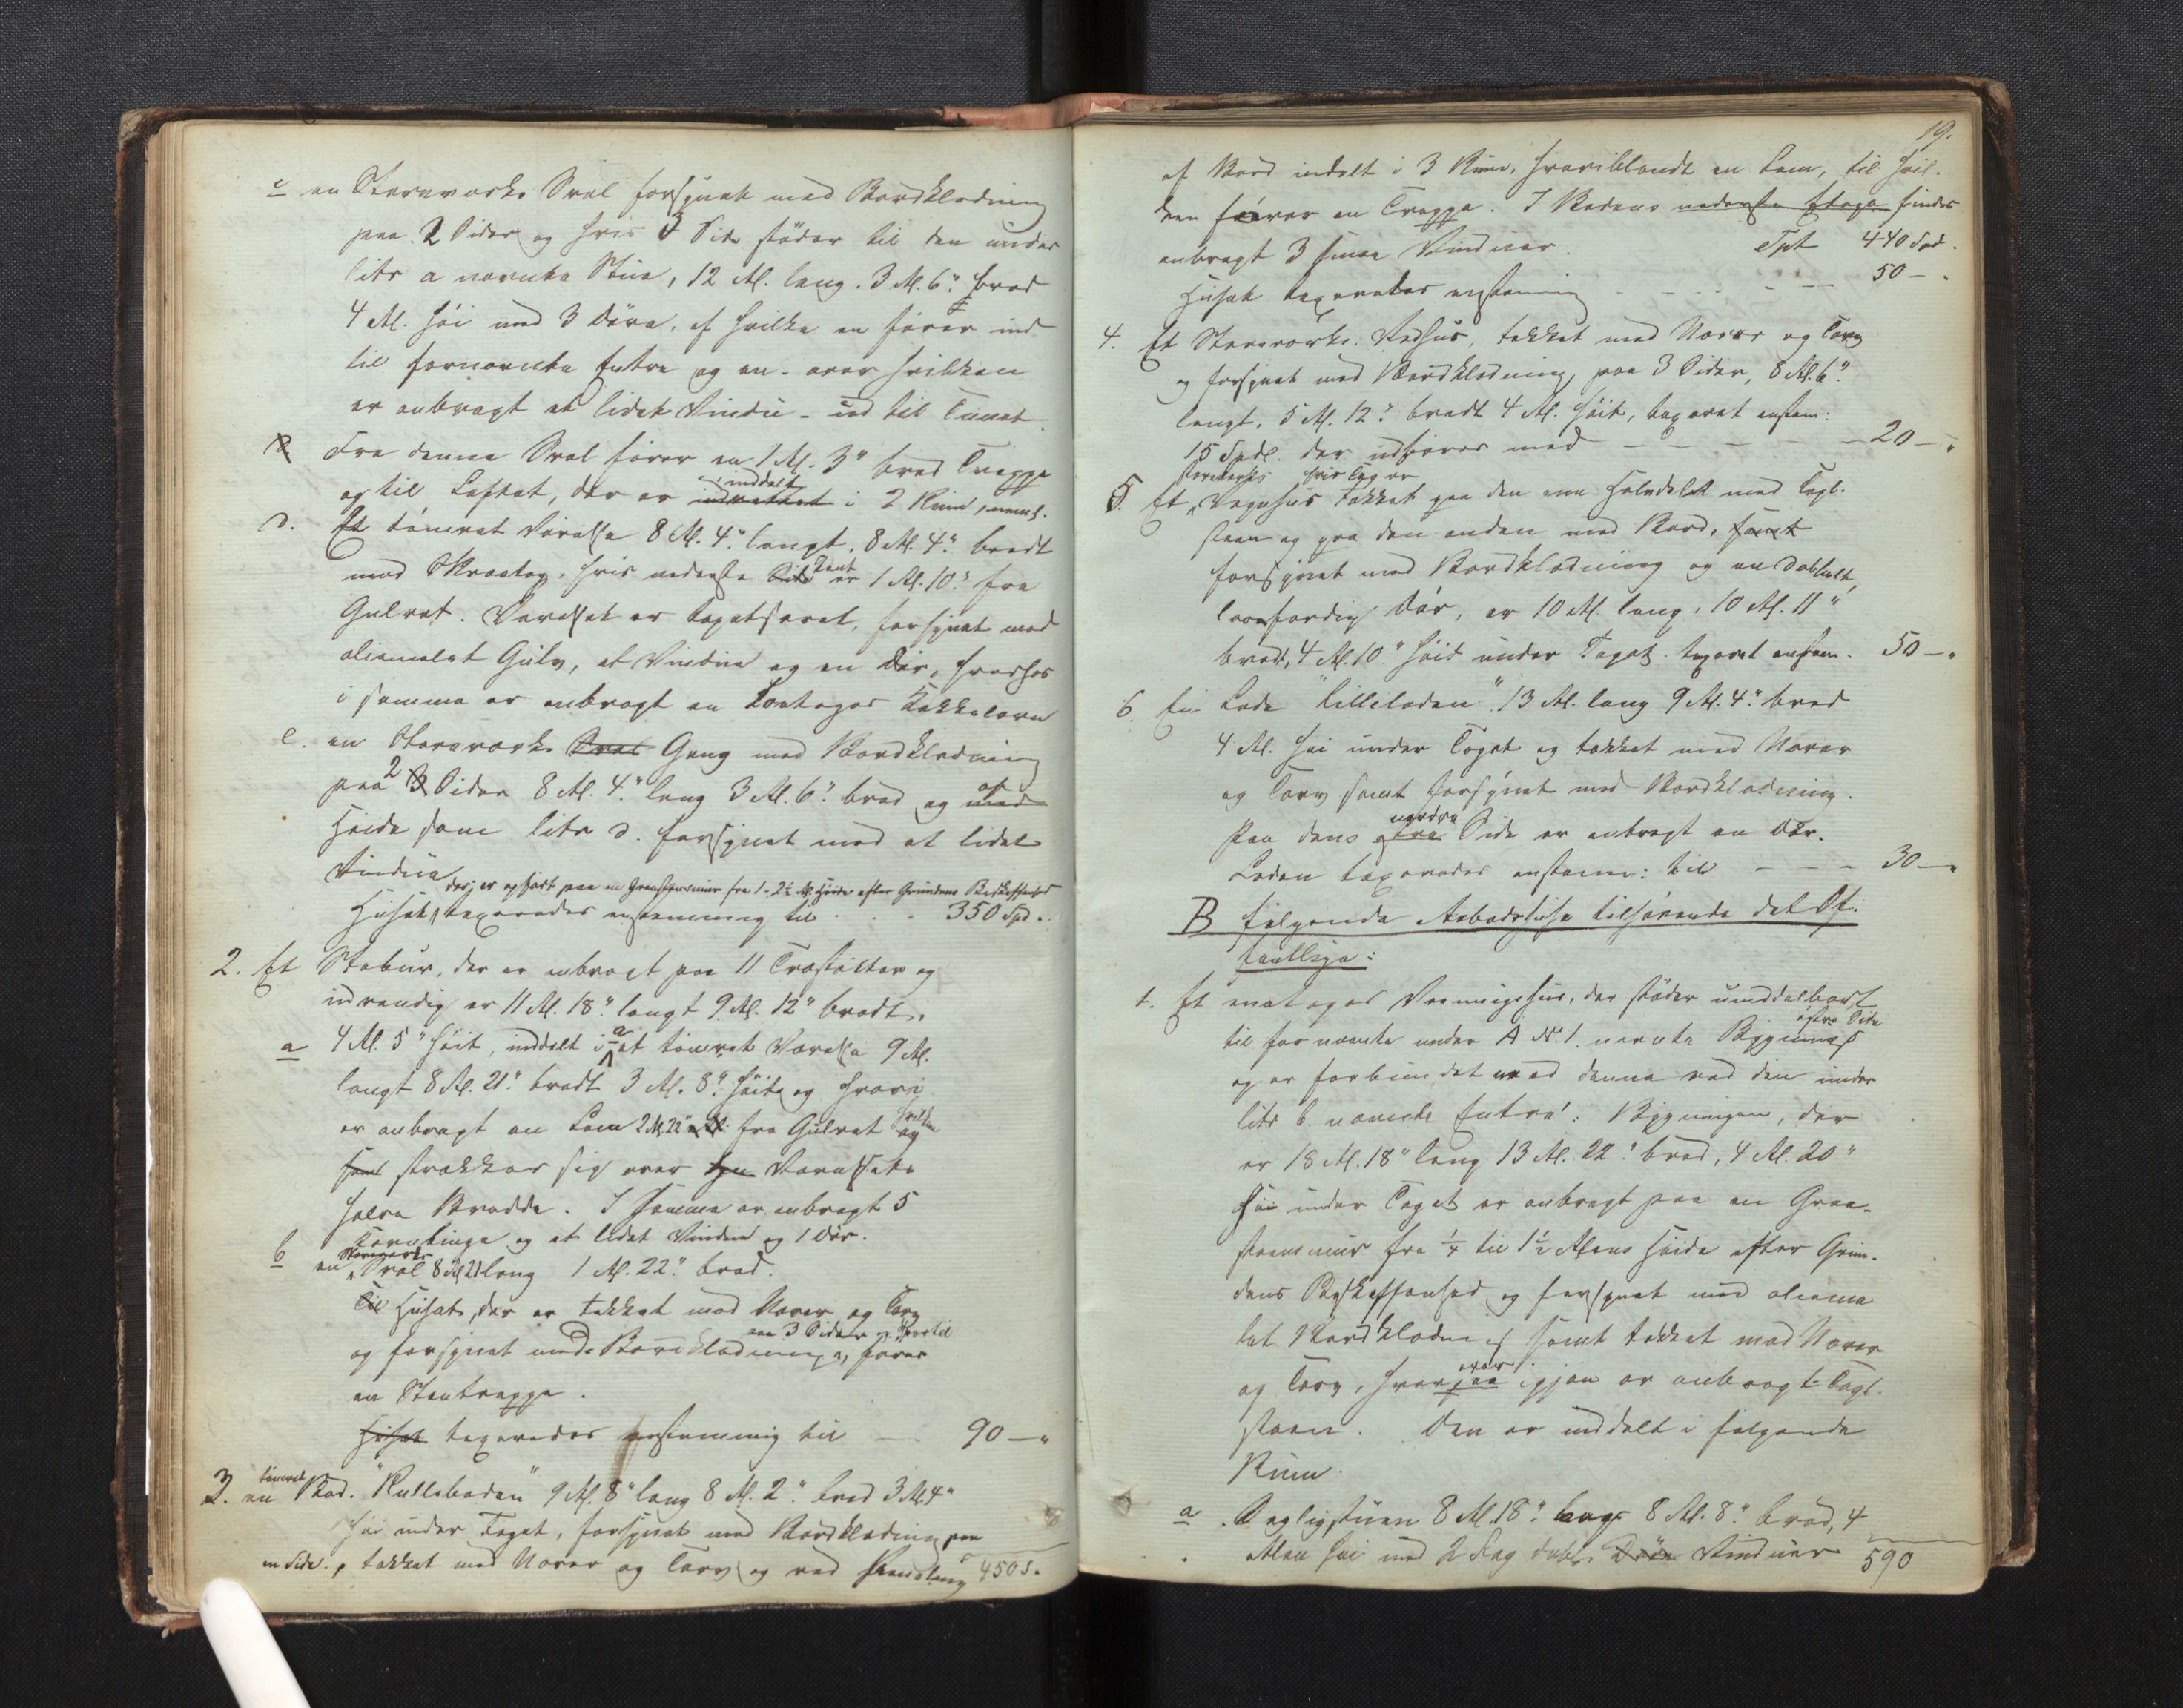 c en Steenværks Sval forsynet med Bordklædning
paa 2 Sider og hvis 3 Side støder til den under
litr a nævnte Stue, 12 Al. lang. 3 Al. 6" bred
4 Al. høi med 3 Døre, af hvilke en fører ind
til fornævnte Entre og en - over hvilken
er anbragt et lidet Vindu - ud til Tunet.
Fra denne Sval fører en 1 Al. 3" bred Trappe
op til Loftet, der er inddelt indrettet i 2 Rum,
d. Et tømret Værelse 8 Al. 4" langt, 8 Al. 4" bredt
med Skraatag, hvis nederste Side Kant er 1 Al. 10" fra
Gulvet. Værelset er tapetseret, forsynet med
oliemalet Gulv, et Vindue og en Dør, hvorhos
i samme er anbragt en toetages Kakkelovn
e. en Steenværks Sval Gang med Bordklædning
paa 2 3 Sider 8 Al. 4" lang 3 Al. 6" bred og med af
Høide som litr d. forsynet med et lidet
Vindue
der er opført paa en Graasteensmuur fra 1-2½ Al. Høide efter Grundens Beskaffenhed
Huset, taxeredes enstemmig til . . . 350 Spd.
2. Et Stabur, der er anbragt paa 11 Træstolper og
indvendig er 11 Al. 18" langt 9 Al. 12" bredt,
a 4 Al. 5" høit, inddelt i a et tømret Værelse 9 Al.
langt 8 Al. 21" bredt 3 Al. 8" høit og hvori
er anbragt en Lem 2 Al. 22" fra Gulvet og hvilken
som strækker sig over Værelsets
halve Bredde. I samme er anbragt 5
Kornbinge og et lidet Vindue og 1 Dør.
b en Steenværks Sval 8 Al. 21 lang 1 Al. 22" bred.
Til Huset, der er tækket med Næver og Torv
og forsynet med Bordklædning paa 3 Sider og hvortil fører
en Steentrappe.
Huset taxeredes enstemmig til — 90 — "
3. en tømret Bod. "Kulleboden" 9 Al. 8" lang 8 Al. 2" bred 3 Al. 4"
høi under Taget, forsynet med Bordklædning paa
en Side, tækket med Næver og Torv og ved
450 S.
19.
af Bord indelt i 3 Rum, hvoriblandt en Lem, til hvil-
den fører en Trappe. I Bodens nederste Etage findes
anbragt 3 smaa Vinduer. Tpt 440 Spd.
Huset taxeredes enstemmig - - - - - 50 - "
4. Et Steenværks Vedhus, tækket med Næver og Torv
og forsynet med Bordklædning paa 3 Sider, 8 Al. 6"
langt, 5 Al. 12" bredt 4 Al. høit, taxeret enstem:
15 Spdl. der udføres med - - - - - 20 - "
5. Et Steenværks Vognhus hvis Tag er tækket paa den ene Halvdel med Tagl-
steen og paa den anden med Bord, samt
forsynet med Bordklædning og en dobbelt,
laasfærdig Dør, er 10 Al. lang, 10 Al. 11"
bredt, 4 Al. 10" høid under Taget. taxeret enstem. 50 - "
6. En Lade "Lilleladen" 13 Al. lang 9 Al. 4" bred
4 Al. høi under Taget og tækket med Næver
og Torv samt forsynet med Bordklædning.
Paa dens nordre Side er anbragt en Dør.
Laden taxeredes enstem: til - - - 30 - "
B følgende Aabodshuse tilhørende det Of-
fentlige:
1. Et eenetages Vaaningshus, der støder umiddelbart
til fornævnte under A No 1. nævnte Bygnings østre Side
og er forbundet med denne ved den under
litr b. nævnte Entré: Bygningen, der
er 18 Al. 18" lang 13 Al. 22" bred, 4 Al. 20"
høi under Taget er anbragt paa en Graa-
steensmuur fra ¼ til 1½ Alens Høide efter Grun-
dens Beskaffenhed og forsynet med oliema
let Bordklædning samt tækket med Næver
og Torv, hvorpaa over igjen er anbragt Tagl-
steen. Den er inddelt i følgende
Rum.
a. Dagligstuen 8 Al. 18" lang 8 Al. 8" bred, 4
Alen høi med 2 Fag dobl. Døre Vinduer
590